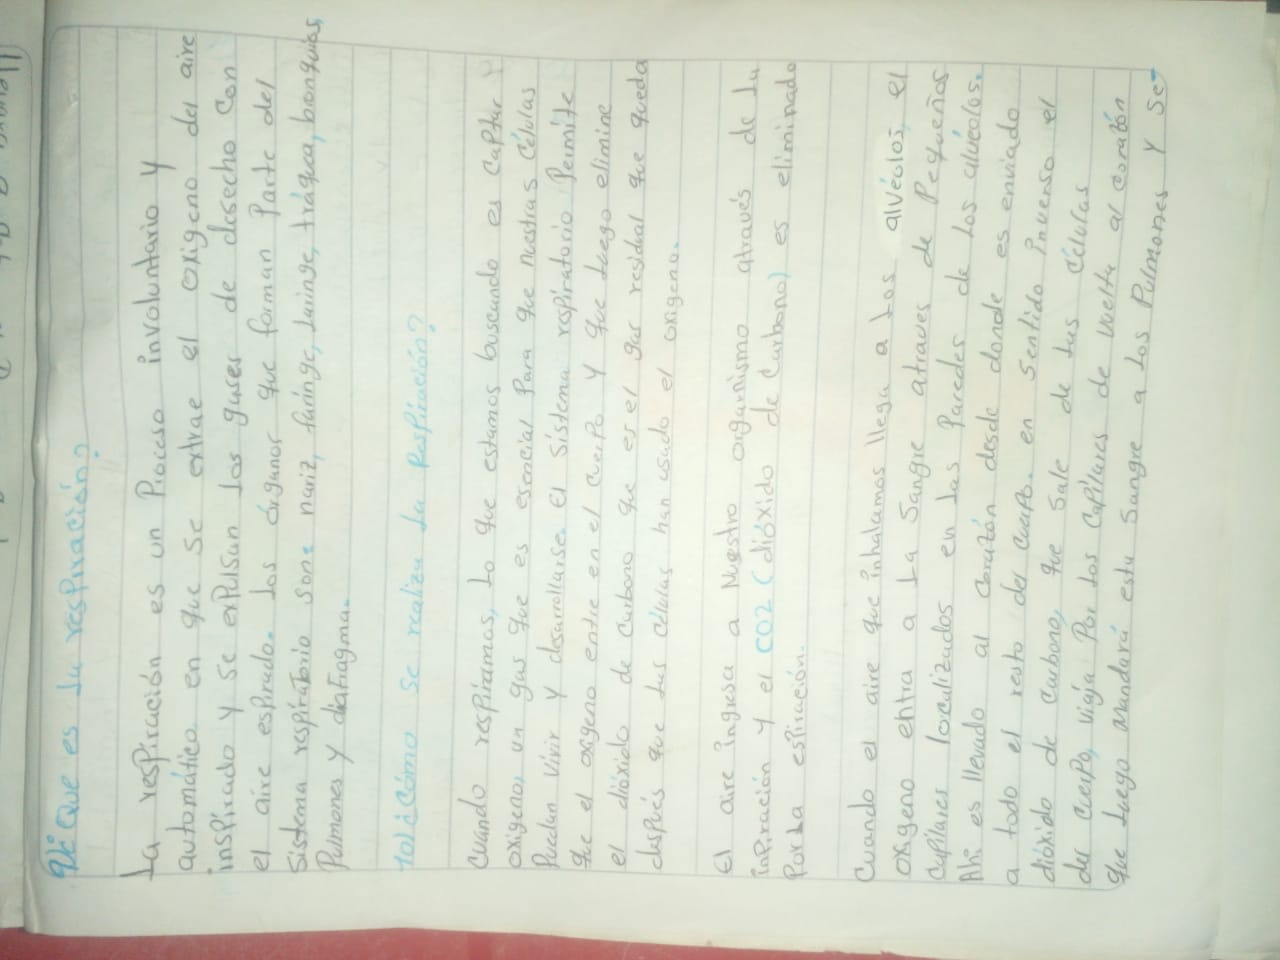 9)¿Que es la respiración?
La respiración es un Proceso involuntario y
automático, en que se extrae el oxigeno del aire
inspirado y se expulsan los gases de desecho con
el aire espirado. Los órganos que forman Parte del
Sistema respiratorio son: nariz, faringe, laringe, tráquea, bronquios,
Pulmones y diafragma.
10)¿Cómo se realiza la Respiración?
Cuando respiramos, lo que estamos buscando es captar
oxigeno, un gas que es esencial Para que nuestras células
Puedan vivir y desarrollarse. El sistema respiratorio Permite
que el oxigeno entre en el cuerpo y que luego elimine
el dióxido de carbono que es el gas residual que queda
después que las células han usado el oxigeno.
El aire ingresa a Nuestro organismo através de la
inpiración y el CO2 (dióxido de Carbono) es eliminado
Por la espiración.
Cuando el aire que inhalamos llega a los alvéolos, el
oxigeno entra a la sangre atraves de Pequeños
Capilares localizados en las Paredes de los alvéolos.
Ahi es llevado al corazón desde donde es enviado
a todo el resto del cuerpo. en sentido inverso el
dióxido de carbono, que sale de las células
del cuerpo, viaja Por los capilares de vuelta al corazón
que luego mandará esta sangre a los Pulmones y se-